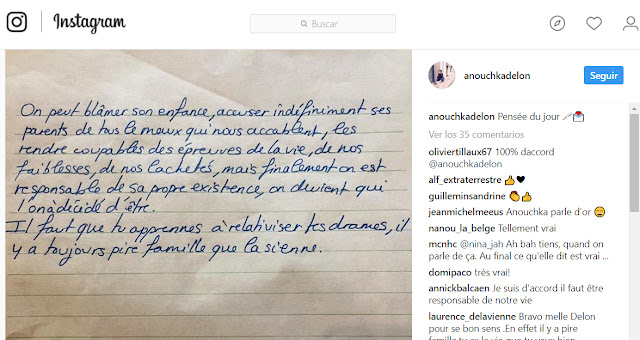 Instagram
Buscar
On peut blâmer son enfance, accuser indéfiniment ses
parents de tous le maux qui nous accablent, les
rendre coupables des épreuves de la vie, de nos
faiblesses, de nos lachetés, mais finalement on est
responsable de sa propre existence, on devient qui
l'on a décidé d'être.
Il faut que tu apprennes à relativiser tes drames, il
y a toujours pire famille que la sienne.
anouchkadelon
Seguir
anouchkadelon Pensée du jour
Ver los 35 comentarios
oliviertillaux67 100% daccord
@anouchkadelon
alf_extraterrestre
guilleminsandrine
jeanmichelmeeus Anouchka parle d'or
nanou_la_belge Tellement vrai
mcnhc @nina_jah Ah bah tiens, quand on
parle de ça. Au final ce qu'elle dit est vrai ...
domipaco très vrai!
annickbalcaen Je suis d'accord il faut être
responsable de notre vie
laurence_delavienne Bravo melle Delon
pour se bon sens .En effet il y a pire